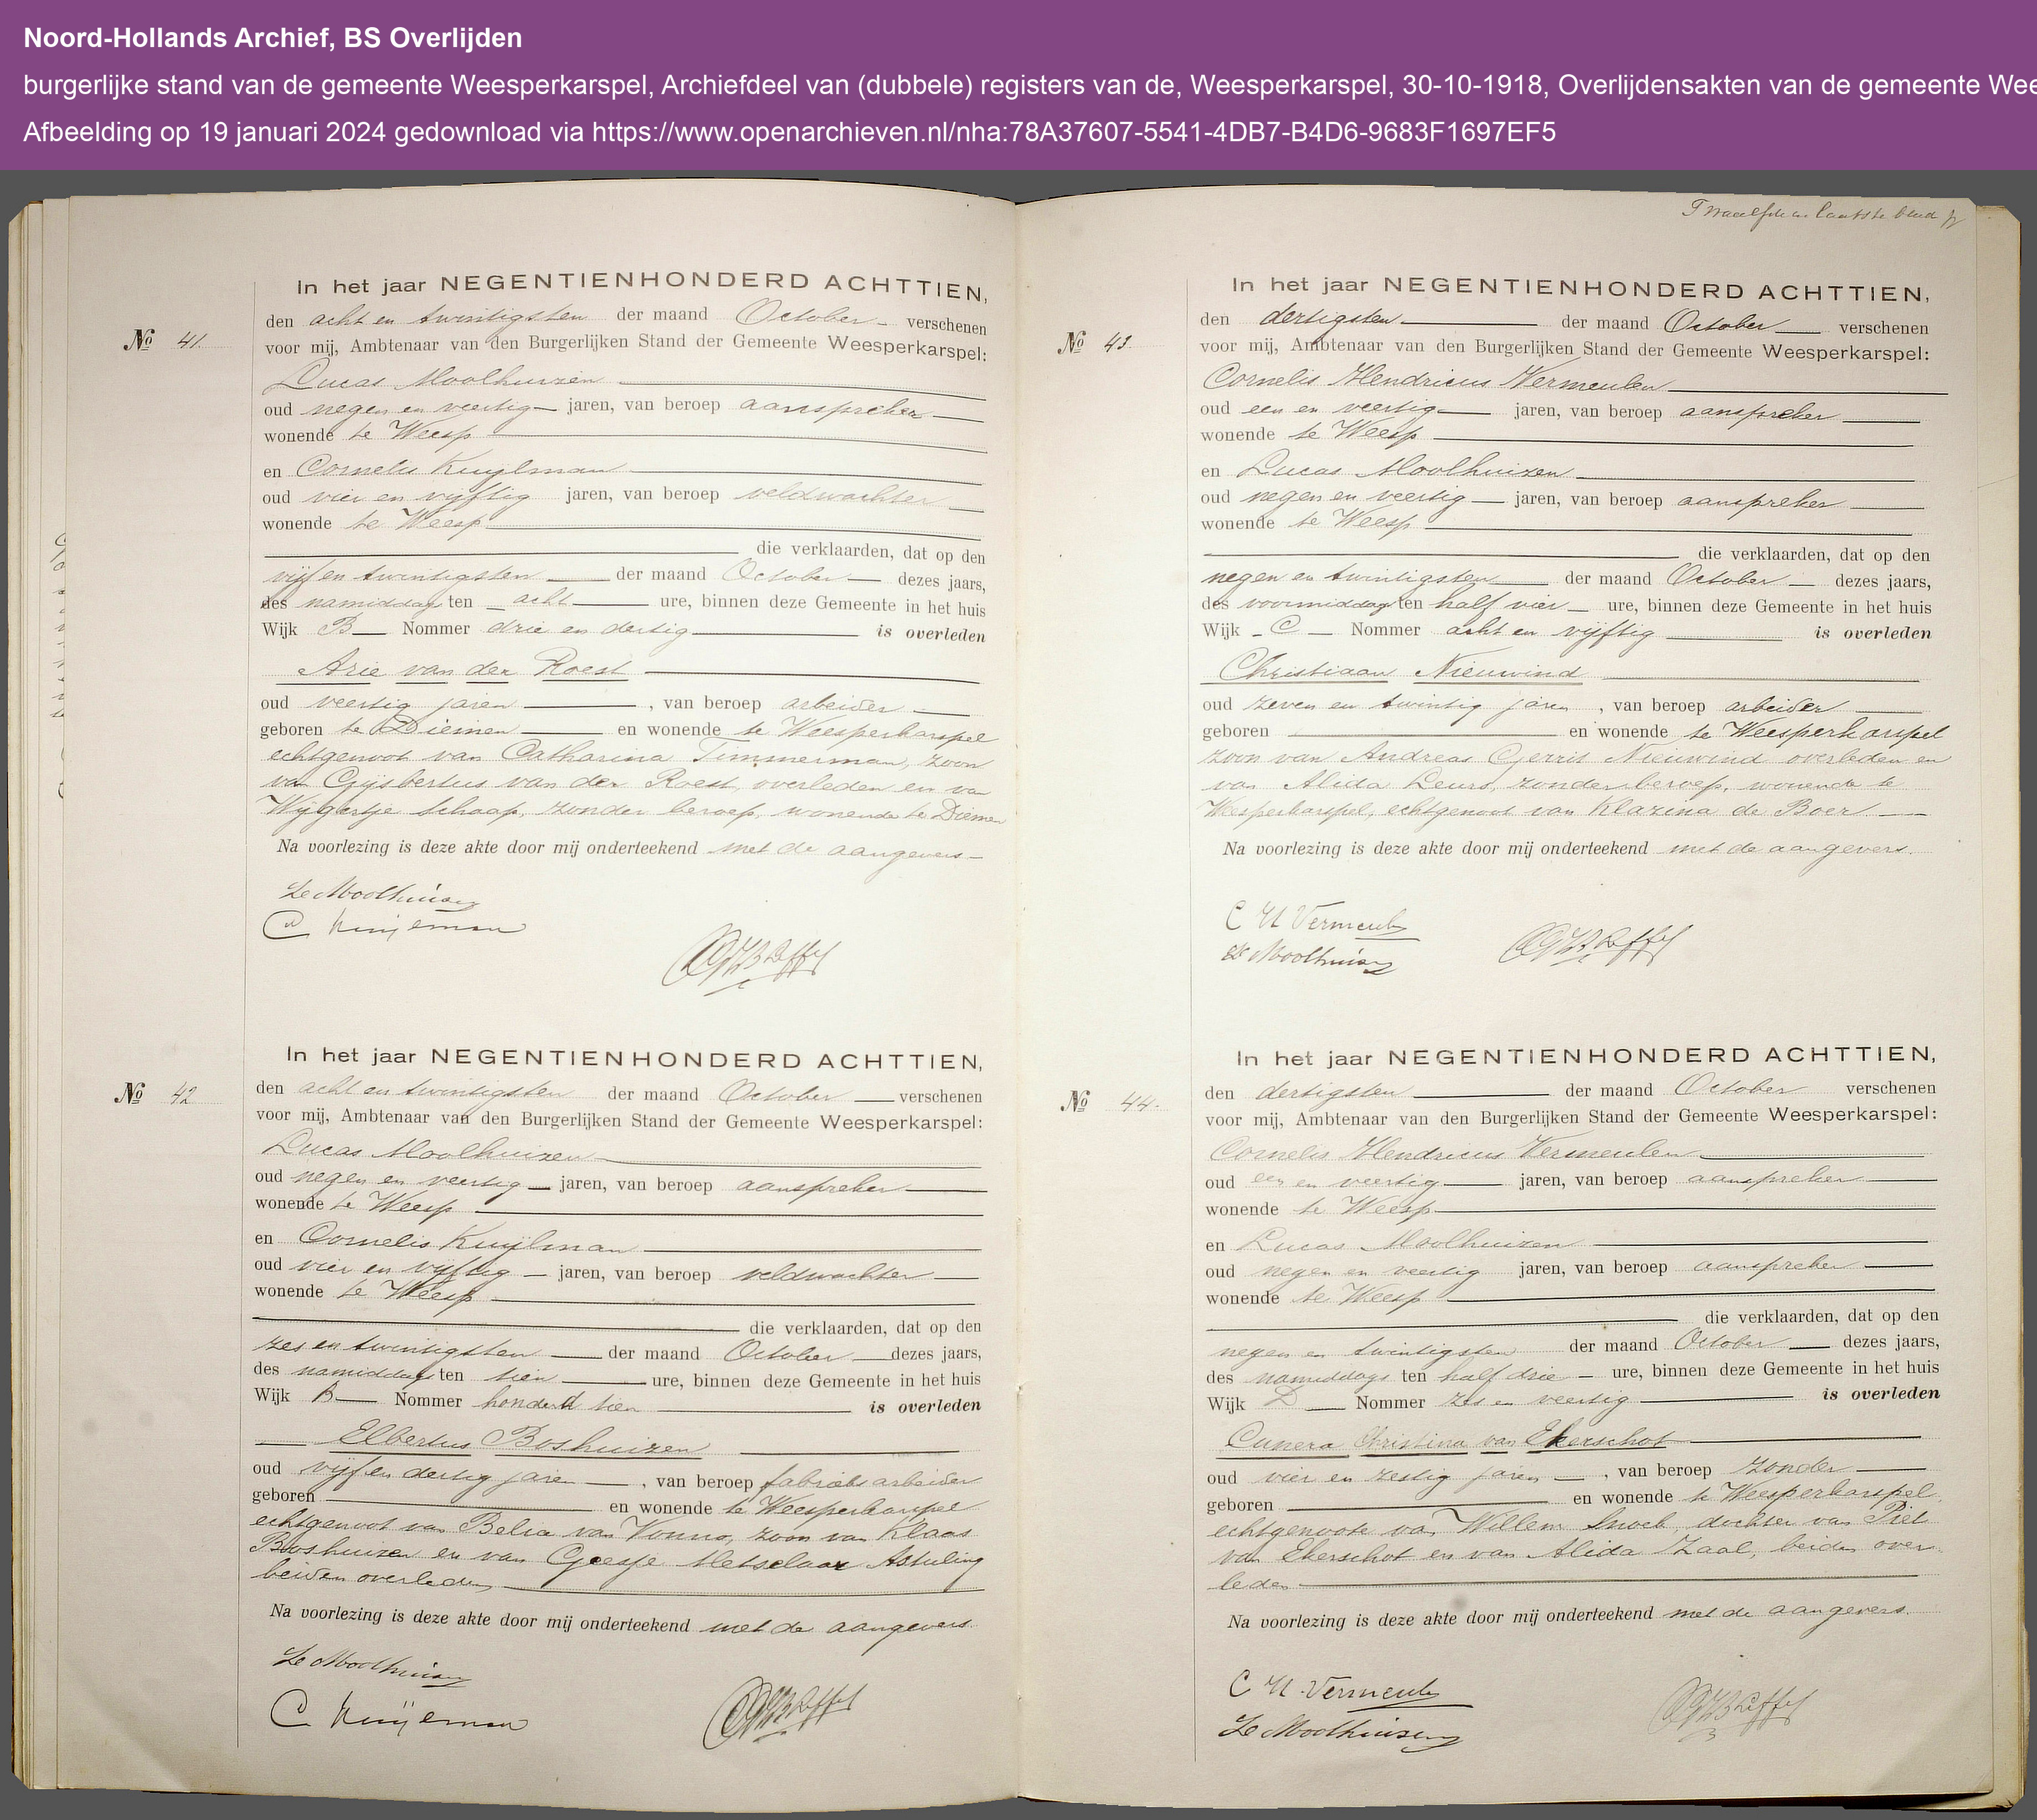 Noord-Hollands Archief, BS Overlijden
burgerlijke stand van de gemeente Weesperkarspel, Archiefdeel van (dubbele) registers van de, Weesperkarspel, 30-10-1918, Overlijdensakten van de gemeente Wee
Afbeelding op 19 januari 2024 gedownload via https://www.openarchieven.nl/nha:78A37607-5541-4DB7-B4D6-9683F1697EF5
In het jaar NEGENTIENHONDERD ACHTTIEN,
No 41.
den acht en twintigsten der maand October verschenen
voor mij, Ambtenaar van den Burgerlijken Stand der Gemeente Weesperkarspel:
Lucas Moolhuizen
oud negen en veertig jaren, van beroep aanspreker
wonende te Weesp
en Cornelis Kuijlman
oud vier en vijftig jaren, van beroep veldwachter
wonende te Weesp
die verklaarden, dat op den
vijf en twintigsten der maand October dezes jaars,
des namiddags ten acht ure, binnen deze Gemeente in het huis
Wijk B Nommer drie en dertig is overleden
Arie van der Roest
oud veertig jaren, van beroep arbeider
geboren te Diemen en wonende te Weesperkarspel
echtgenoot van Catharina Timmerman, zoon
van Gijsbertus van der Roest, overleden en van
Wijgertje Schaap, zonder beroep, wonende te Diemen
Na voorlezing is deze akte door mij onderteekend met de aangevers
Le Moolhuisen
C Kuijlman
In het jaar NEGENTIENHONDERD ACHTTIEN,
No 42
den acht en twintigsten der maand October verschenen
voor mij, Ambtenaar van den Burgerlijken Stand der Gemeente Weesperkarspel:
Lucas Moolhuizen
oud negen en veertig jaren, van beroep aanspreker
wonende te Weesp
en Cornelis Kuijlman
oud vier en vijftig jaren, van beroep veldwachter
wonende te Weesp
die verklaarden, dat op den
zes en twintigsten der maand October dezes jaars,
des namiddags ten tien ure, binnen deze Gemeente in het huis
Wijk B Nommer honderd tien is overleden
Elbertus Boshuizen
oud vijf en dertig jaren, van beroep fabrieksarbeider
geboren en wonende te Weesperkarspel
echtgenoot van Belia van Vonno, zoon van Klaas
Boshuizen en van Geesje Metselaar
beiden overleden
Na voorlezing is deze akte door mij onderteekend met de aangevers.
Le Moolhuisen
C Kuijlman
Twaalfde en laatste blad
In het jaar NEGENTIENHONDERD ACHTTIEN,
No 43
den dertigsten der maand October verschenen
voor mij, Ambtenaar van den Burgerlijken Stand der Gemeente Weesperkarspel:
Cornelis Hendricus Vermeulen
oud een en veertig jaren, van beroep aanspreker
wonende te Weesp
en Lucas Moolhuizen
oud negen en veertig jaren, van beroep aanspreker
wonende te Weesp
die verklaarden, dat op den
negen en twintigsten der maand October dezes jaars,
des voormiddags ten half vier ure, binnen deze Gemeente in het huis
Wijk C Nommer acht en vijftig is overleden
Christiaan Nieuwind
oud zeven en twintig jaren, van beroep arbeider
geboren en wonende te Weesperkarspel
zoon van Andreas Gerrit Nieuwind overleden en
van Alida Leurs, zonder beroep, wonende te
Weesperkarspel, echtgenoot van Klazina de Boer
Na voorlezing is deze akte door mij onderteekend met de aangevers.
C H Vermeulen
Le Moolhuisen
In het jaar NEGENTIENHONDERD ACHTTIEN,
No 44.
den dertigsten der maand October verschenen
voor mij, Ambtenaar van den Burgerlijken Stand der Gemeente Weesperkarspel:
Cornelis Hendricus Vermeulen
oud een en veertig jaren, van beroep aanspreker
wonende te Weesp
en Lucas Moolhuizen
oud negen en veertig jaren, van beroep aanspreker
wonende te Weesp
die verklaarden, dat op den
negen en twintigsten der maand October dezes jaars,
des namiddags ten half drie ure, binnen deze Gemeente in het huis
Wijk D Nommer zes en veertig is overleden
Cunera Christina van Ekerschot
oud vier en zestig jaren, van beroep zonder
geboren en wonende te Weesperkarspel,
echtgenoote van Willem Snoek, dochter van Piet
van Ekerschot en van Alida Zaal, beiden over
leden
Na voorlezing is deze akte door mij onderteekend met de aangevers.
C H Vermeulen
Le Moolhuisen